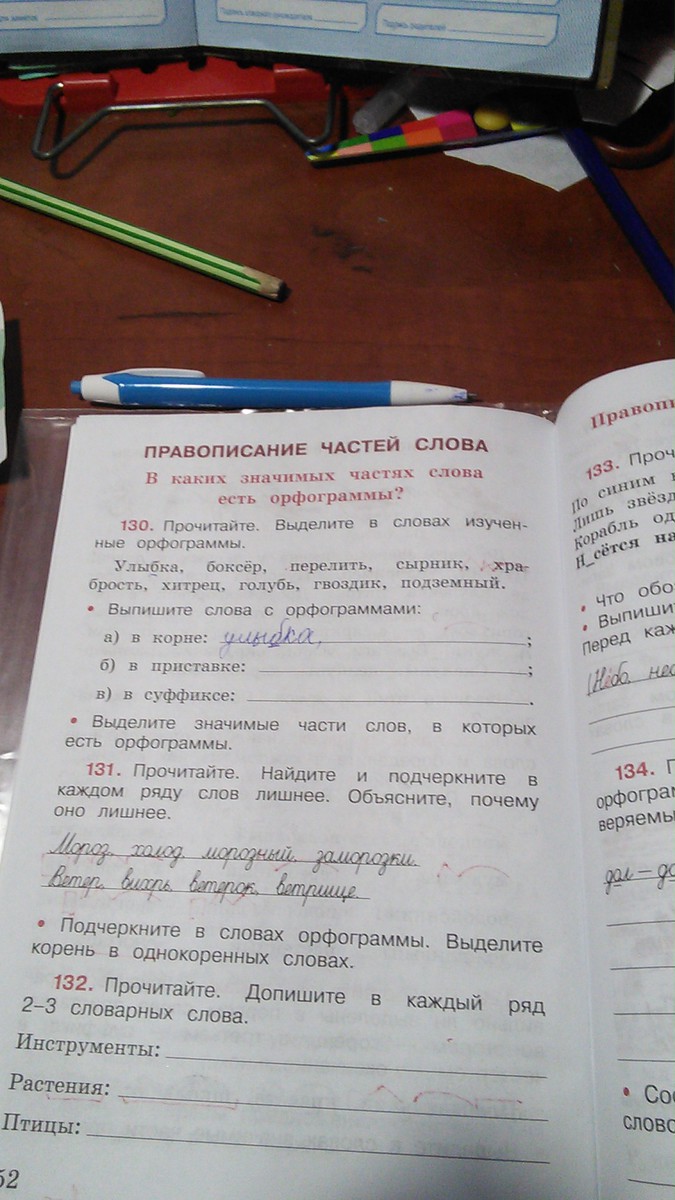 Подпись классного руководителя
Подпись родителей
ПРАВОПИСАНИЕ ЧАСТЕЙ СЛОВА
В каких значимых частях слова
есть орфограммы?
130. Прочитайте. Выделите в словах изучен-
ные орфограммы.
Улыбка, боксёр, перелить, сырник, хра-
брость, хитрец, голубь, гвоздик, подземный.
• Выпишите слова с орфограммами:
а) в корне: улыбка, ;
б) в приставке: ;
в) в суффиксе: .
• Выделите значимые части слов, в которых
есть орфограммы.
131. Прочитайте. Найдите и подчеркните в
каждом ряду слов лишнее. Объясните, почему
оно лишнее.
Мороз, холод, морозный, заморозки.
Ветер, вихрь, ветерок, ветрище.
• Подчеркните в словах орфограммы. Выделите
корень в однокоренных словах.
132. Прочитайте. Допишите в каждый ряд
2–3 словарных слова.
Инструменты:
Растения:
Птицы:
52
133.
По синим
Лишь
Корабль
Н_сётся
• Что
•
Перед
134.